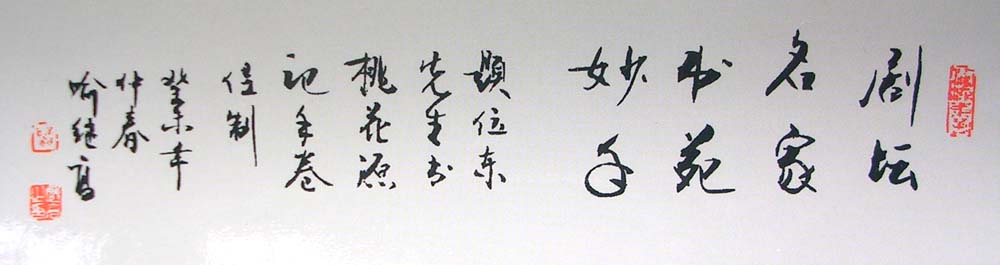 剧坛
名家
书苑
妙手
题位东
先生书
桃花源
记手卷
佳制
癸未年
仲春
喻继高